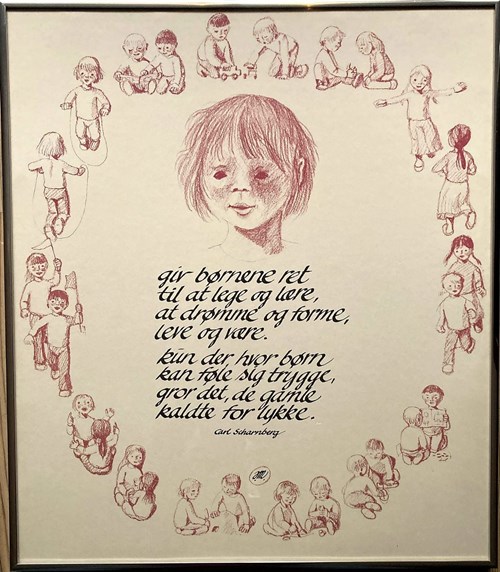 gir børnene ret
til at lege og lære,
at drømme og forme,
leve og være.
kun der, hvor børn
kan føle sig trygge,
gror det, de gamle
kaldte for lykke.
Carl Scharnberg